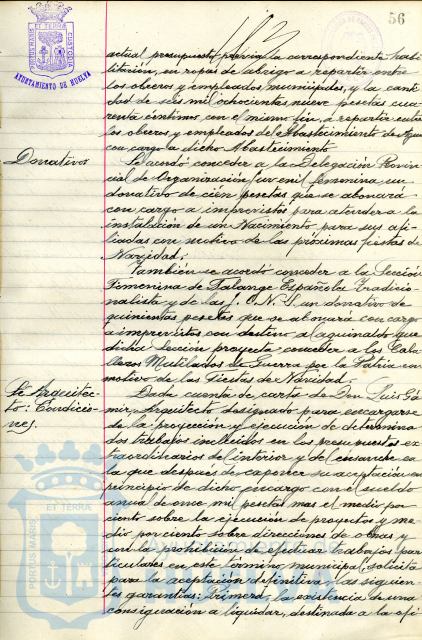 56
PORTUS MARIS ET TERRÆ CUSTODIA
AYUNTAMIENTO DE HUELVA
actual presupuesto, previa la correspondiente habi-
litación, en ropas de abrigo a repartir entre
los obreros y empleados municipales, y la canti-
dad de seis mil ochocientas nueve pesetas cua-
renta céntimos con el mismo fin, a repartir entre
los obreros y empleados del Abastecimiento de Aguas
con cargo a dicho Abastecimiento.
Donativos
Se acordó conceder a la Delegación Provin-
cial de Organización Juvenil femenina un
donativo de cien pesetas que se abonará
con cargo a imprevistos para atender a la
instalación de un Nacimiento para sus afi-
liadas con motivo de las próximas fiestas de
Navidad.
También se acordó conceder a la Sección
Femenina de Falange Española Tradicio-
nalista y de las J.O.N.S. un donativo de
quinientas pesetas que se abonará con cargo
a imprevistos con destino al aguinaldo que
dicha Sección proyecta conceder a los Caba-
lleros Mutilados de Guerra por la Patria con
motivo de las Fiestas de Navidad.
Sr. Arquitec-
to: Condicio-
nes.
Dada cuenta de carta de Don Luis Gá-
mir, Arquitecto designado para encargarse
de la proyección y ejecución de determina-
dos trabajos incluidos en los presupuestos ex-
traordinarios del interior y de ensanche en
la que después de exponer su aceptación en
principio de dicho encargo con el sueldo
anual de once mil pesetas mas el medio por
ciento sobre la ejecución de proyectos y me-
dio por ciento sobre direcciones de obras y
con la prohibición de efectuar trabajos par-
ticulares en este término municipal, solicita
para la aceptación definitiva, las siguien-
tes garantías: Primera, la existencia de una
consignación a liquidar, destinada a la ofi-